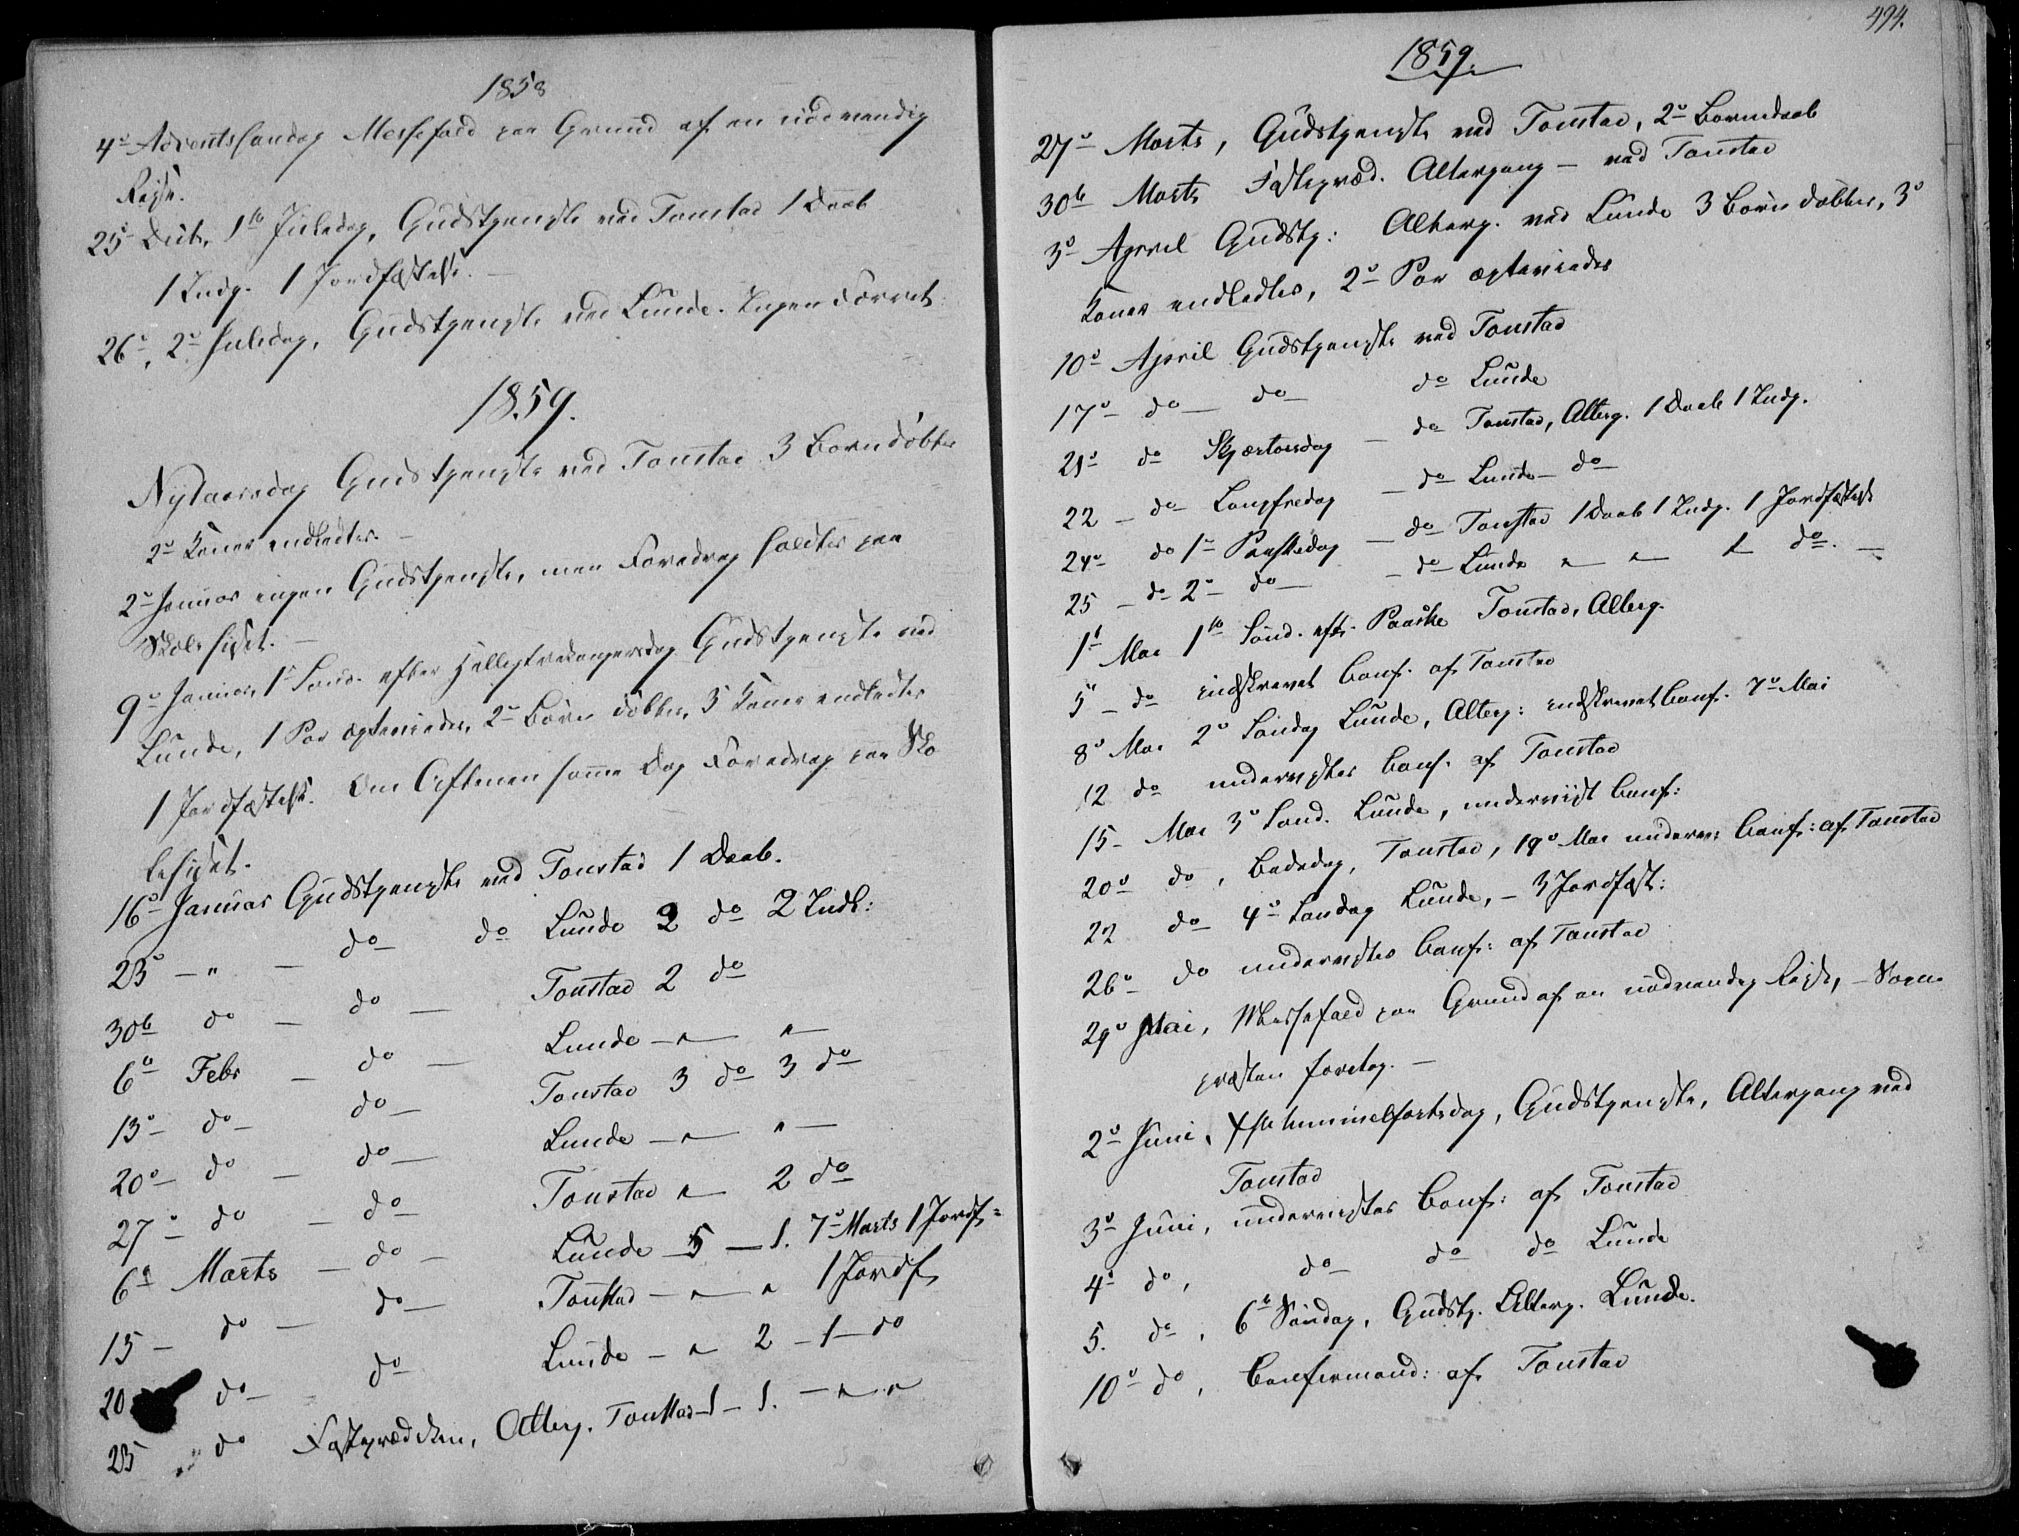 1858
4de Adventssøndag Messefald paa Grund af en nødvendig
Rejse.
25de Decbr, 1te Juledag, Gudstjeneste ved Tonstad 1 Daab
1 Indg. 1 Jordfæstelse. —
26de, 2den Juledag, Gudstjeneste ved Lunde. Ingen Forret:
1859.
Nytaarsdag Gudstjeneste ved Tonstad 3 Børn døbtes
2de Koner indledtes. —
2den Januar ingen Gudstjeneste, men Foredrag holdtes paa
Skolehuset. —
9de Januar, 1 Sønd. efter Helligtrekongersdag Gudstjeneste ved
Lunde, 1 Par ægteviedes, 2de Børn døbtes, 3 Koner indledtes
1 Jordfæstelse. Om Aftenen samme Dag Foredrag paa Sko
lehuset.
16de Januar Gudstjeneste ved Tonstad 1 Daab.
23de — " — do do Lunde 2 do 2 Indl:
30te do — do — Tonstad 2 do
6te Febr — do — Lunde — " — "
13de do do — Tonstad 3 do 3 do
20de do — do — Lunde — " — " —
27de do — do Tonstad " — 2 do
6te Marts — do — Lunde 5 — 1. 7de Marts 1 Jordf:
13 — do — do — Tonstad — " — " 1 Jordf
20 do — do Lunde — " 2 — 1 — do
23 do Fasteprædiken, Alterg. Tonstad — 1 — 1. — " — "
494.
1859.
27de Marts, Gudstjeneste ved Tonstad, 2de Barnedaab
30te Marts Fastepræd. Altergang — ved Tonstad
3de April Gudstj: Alterg. ved Lunde 3 Børn døbtes, 3de
Koner indledtes, 2de Par ægteviedes
10de April Gudstjeneste ved Tonstad
17de do — do — do Lunde
21de do Skjærtorsdag — do Tonstad, Alterg. 1 Daab 1 Indg.
22 — do Langfredag — do Lunde — do
24de do 1ste Paaskedag — do Tonstad 1 Daab 1 Indg. 1 Jordfæstelse
25 — do 2den do — — do Lunde " — " — 1 do. —
1ste Mai 1te Sønd. eft. Paaske Tonstad, Alterg.
5 — do indskrevet Conf. af Tonstad
8de Mai 2den Søndag Lunde, Alterg: indskrevet Conf. 7de Mai
12 do undervistes Conf. af Tonstad
15 — Mai 3de Sønd. Lunde, underviist Conf:
20de do, Bededag, Tonstad, 19de Mai underv: Conf: af Tonstad
22 do 4de Søndag Lunde, — 3 Jordfæst:
26de do undervistes Conf: af Tonstad
29de Mai, Messefald paa Grund af en nødvendig Rejse, — Sogne
præsten foretog. —
2den Juni, Xsti himmelfartsdag, Gudstjeneste, Altergang ved
Tonstad
3de Juni, undervistes Conf: af Tonstad
4de do, do do do Lunde
5. do, 6te Søndag, Gudstj. Alterg. Lunde.
10de do, Confirmand: af Tonstad